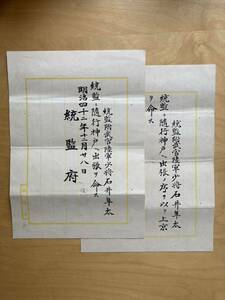 統監附武官陸軍少将石井隼太
統監ニ随行神戸ヘ出張ノ序ヲ以テ上京
ヲ命ス
統監附武官陸軍少将石井隼太
統監ニ随行神戸ヘ出張ヲ命ス
明治四十二年十月廿八日
統監府